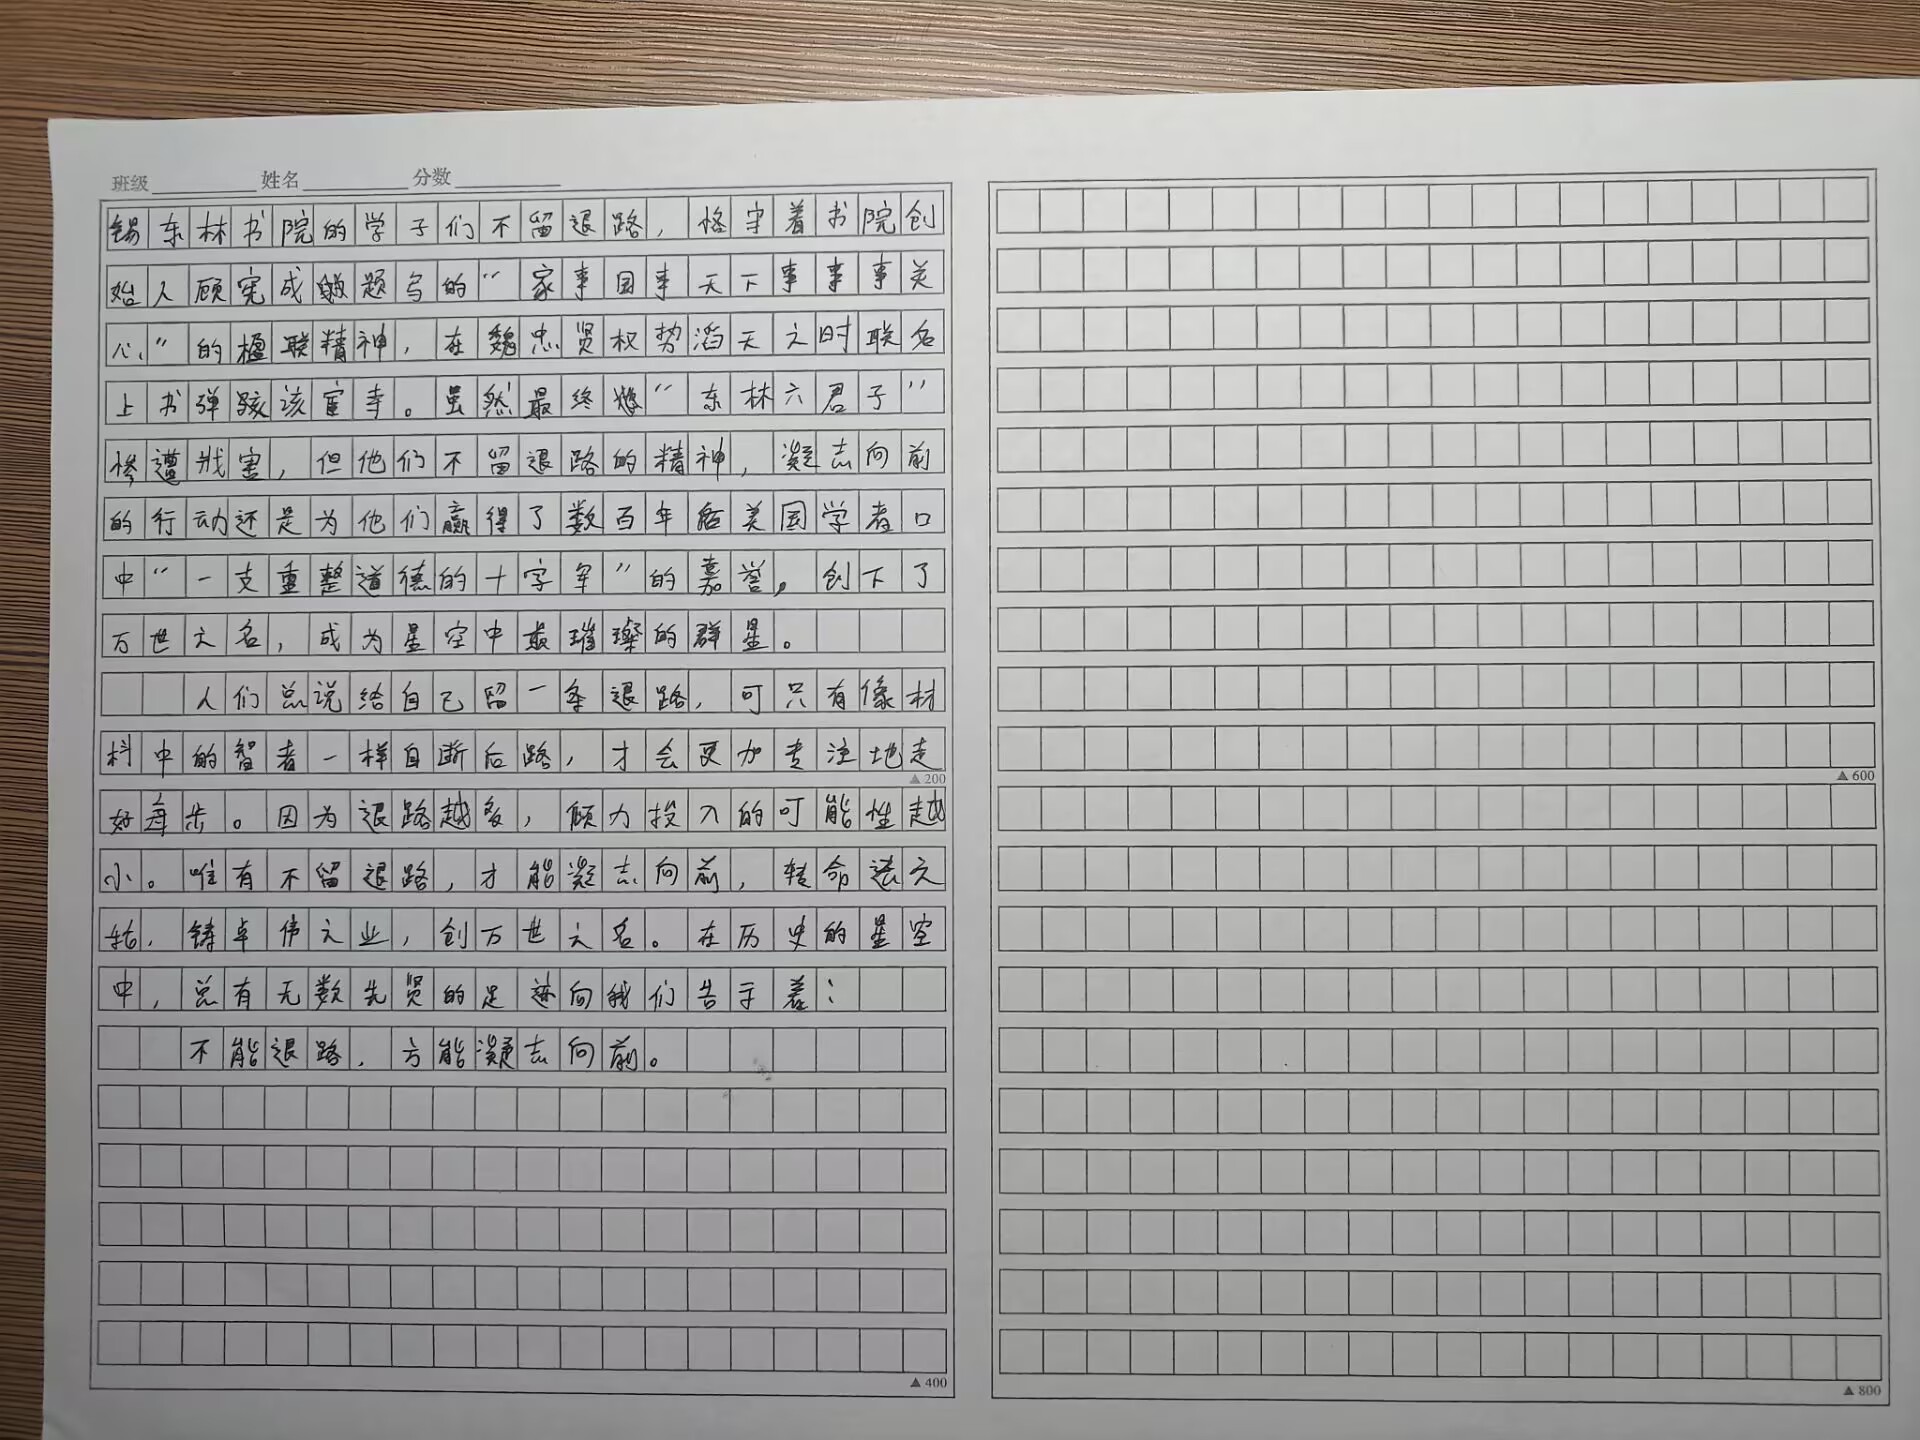 班级 姓名 分数
锡东林书院的学子们不留退路，恪守着书院创
始人顾宪成题写的“家事国事天下事事事关
心”的楹联精神，在魏忠贤权势滔天之时联名
上书弹骇该宦寺。虽然最终“东林六君子”
惨遭戕害，但他们不留退路的精神，凝志向前
的行动还是为他们赢得了数百年后美国学者口
中“一支重整道德的十字军”的嘉誉，创下了
万世之名，成为星空中最璀璨的群星。
人们总说给自己留一条退路，可只有像材
料中的智者一样自断后路，才会更加专注地走
▲200
好每步。因为退路越多，倾力投入的可能性越
小。唯有不留退路，才能凝志向前，转命途之
轱，铸卓伟之业，创万世之名。在历史的星空
中，总有无数先贤的足迹向我们告示着：
不能退路，方能凝志向前。
▲400
▲600
▲800